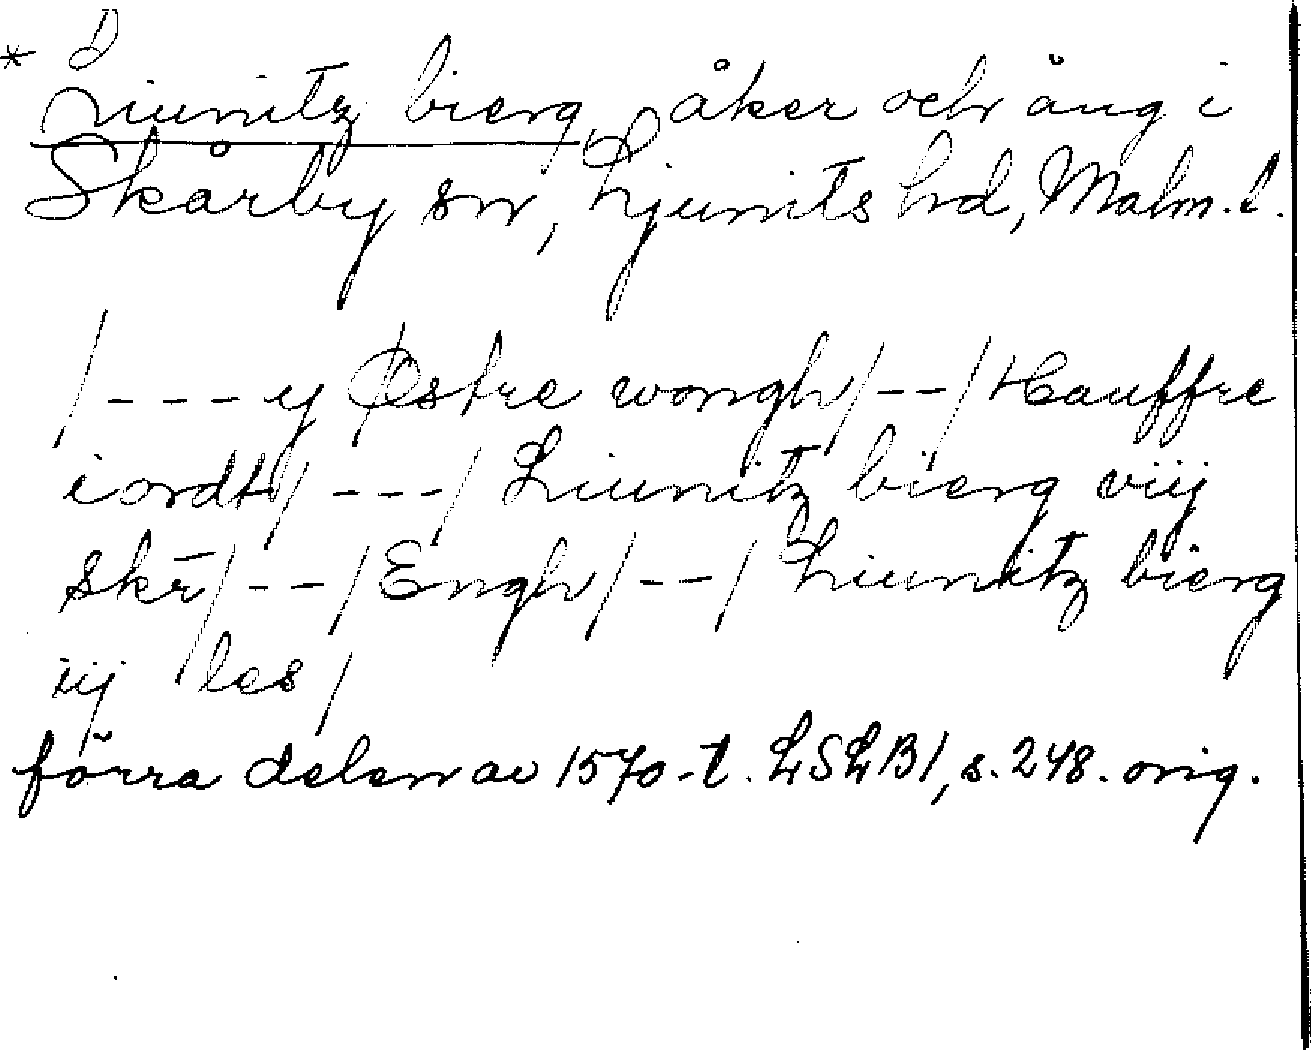 * Liunitz bierg, åker och äng i
Skårby sn, Ljunits hd, Malm. l.
/---y Østre wongh/--/Hauffre
iordt/---/Liunitz bierg viij
skr̄/--/Engh/--/Liunitz bierg
iij les/
förra delen av 1570-t. LSLB1, s. 248. orig.